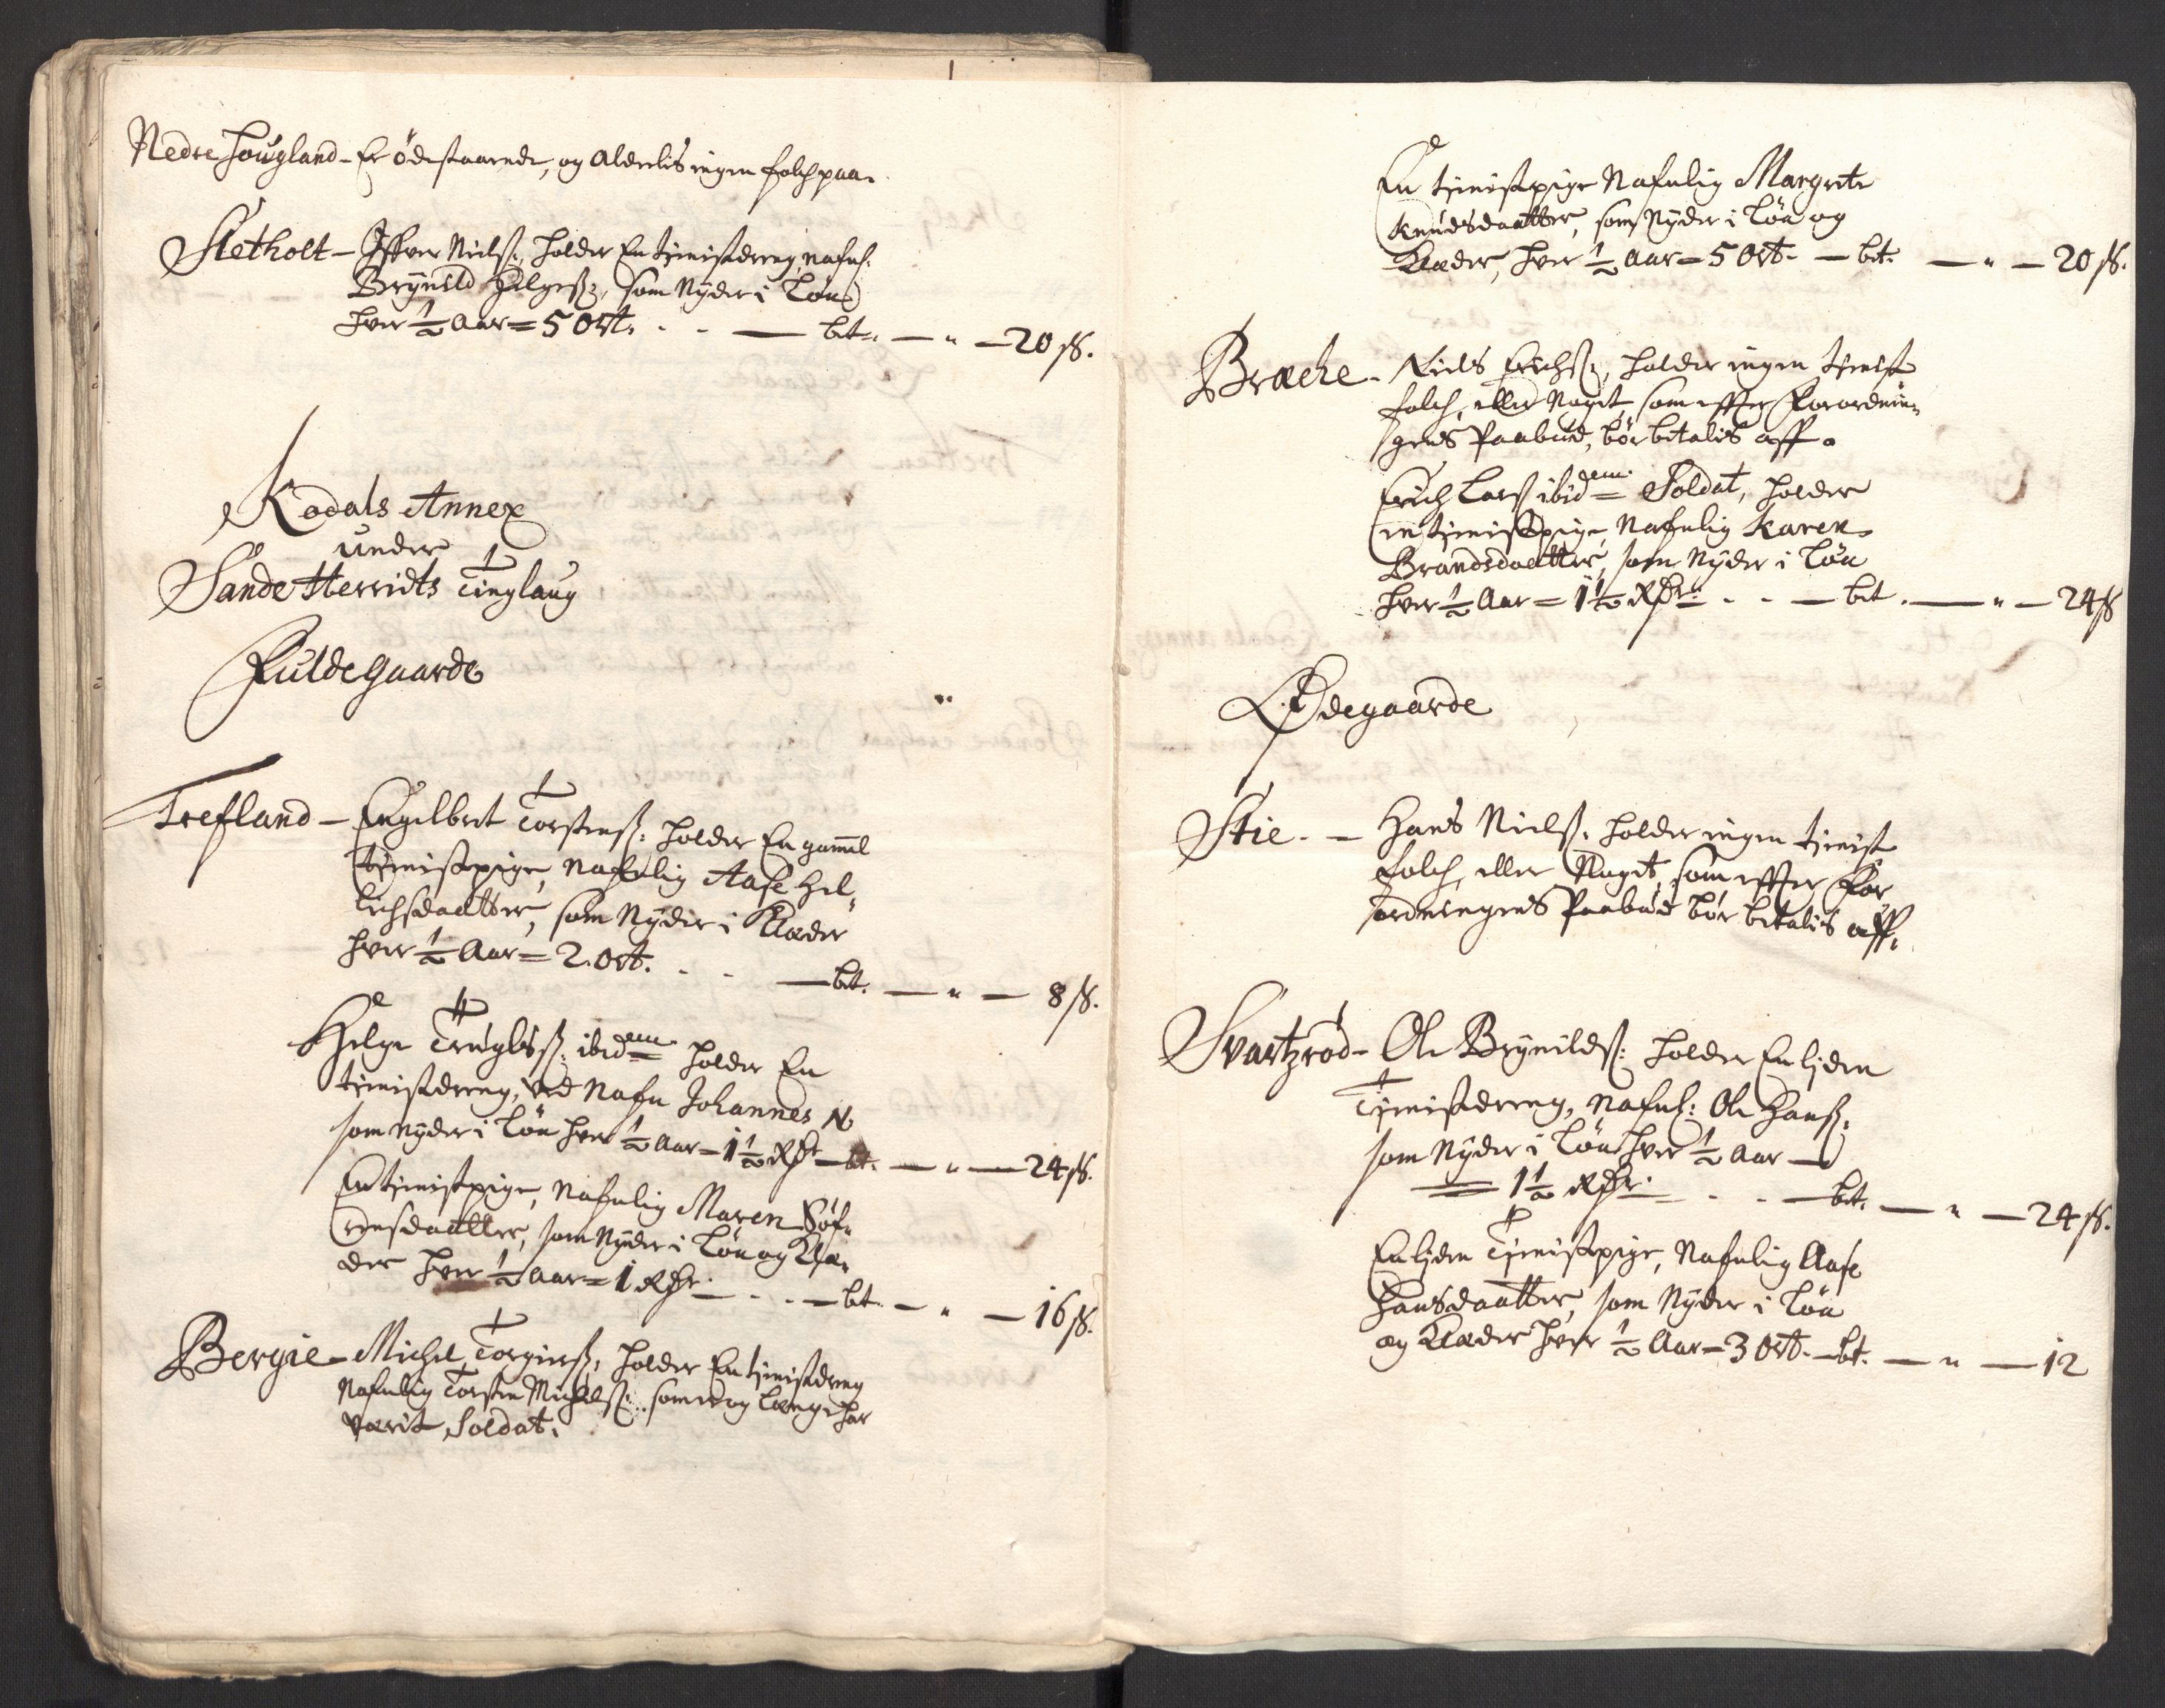 Nedre Hougland - Er ödestaaende, og Aldeelis ingen folch paa.
Sletholt - Iffver Nielsß: holder En tienistdreng, nafnl:
Brÿnild Helgesß:, som Nÿder i Løn
hver ½ Aar = 5 Ort. - - — bet. — " — 20 ß.
Kodals Annex
under
Sande Herridts Tinglaug
Fulde Gaarde
Trefland - Engelbret Torstensß: holder En gammel
tienistpige, Nafnlig Aase Hel,,
lichsdaatter, som Nÿder i Klæder
hver ½ Aar = 2. Ort. - - — bet. — " — 8 ß.
Helge Truglsß: ibidem holder En
tienistdreng, ved Nafn Johannes N.
som nÿder i Løn hver ½ Aar - 1½ Rdr — bet. — " — 24 ß.
En tienistpige, Nafnlig Maren Søf,,
rensdaatter, som Nÿder i Løn og Klæ,,
der hver ½ Aar = 1 Rdr. - - — bet. — " — 16 ß.
Bergie - Michel Torgiersß: holder En tienistdreng
Nafnlig Torsten Michelsß: som end og længe har
værit Soldat.
En tienistpige Nafnlig Margrete
Knudsdaatter, som Nÿder i Løn og
Klæder, hver ½ Aar - 5 Ort. — bet. — " — 20 ß.
Bræche - Niels Erichsß:, holder ingen tienist
folch, eller Noget, som efter Forordnin,,
gens Paabud, bör betalis aff.
Erich Larsß ibidem Soldat, holder
en tienistpige, Nafnlig Karen
Brandsdaatter, som Nÿder i Løn
hver ½ Aar = 1½ Rdr: - - — bet. — " — 24 ß
Ødegaarde
Stie. - Hans Nielsß: holder ingen tienist
folch, eller Noget, som efter For,,
ordningens Paabud bör betalis aff.
Svartzrød - Ole Brÿnildsß: holder En liden
Tienistdreng, Nafnl: Ole Hansß:
som Nÿder i Løn hver ½ Aar —
= 1½ Rdr. - - — bet. — " — 24 ß.
En liden Tienistpige, Nafnlig Aase
Hansdaatter, som Nÿder i Løn
og Klæder hver ½ Aar - 3 Ort. — bet. — " — 12